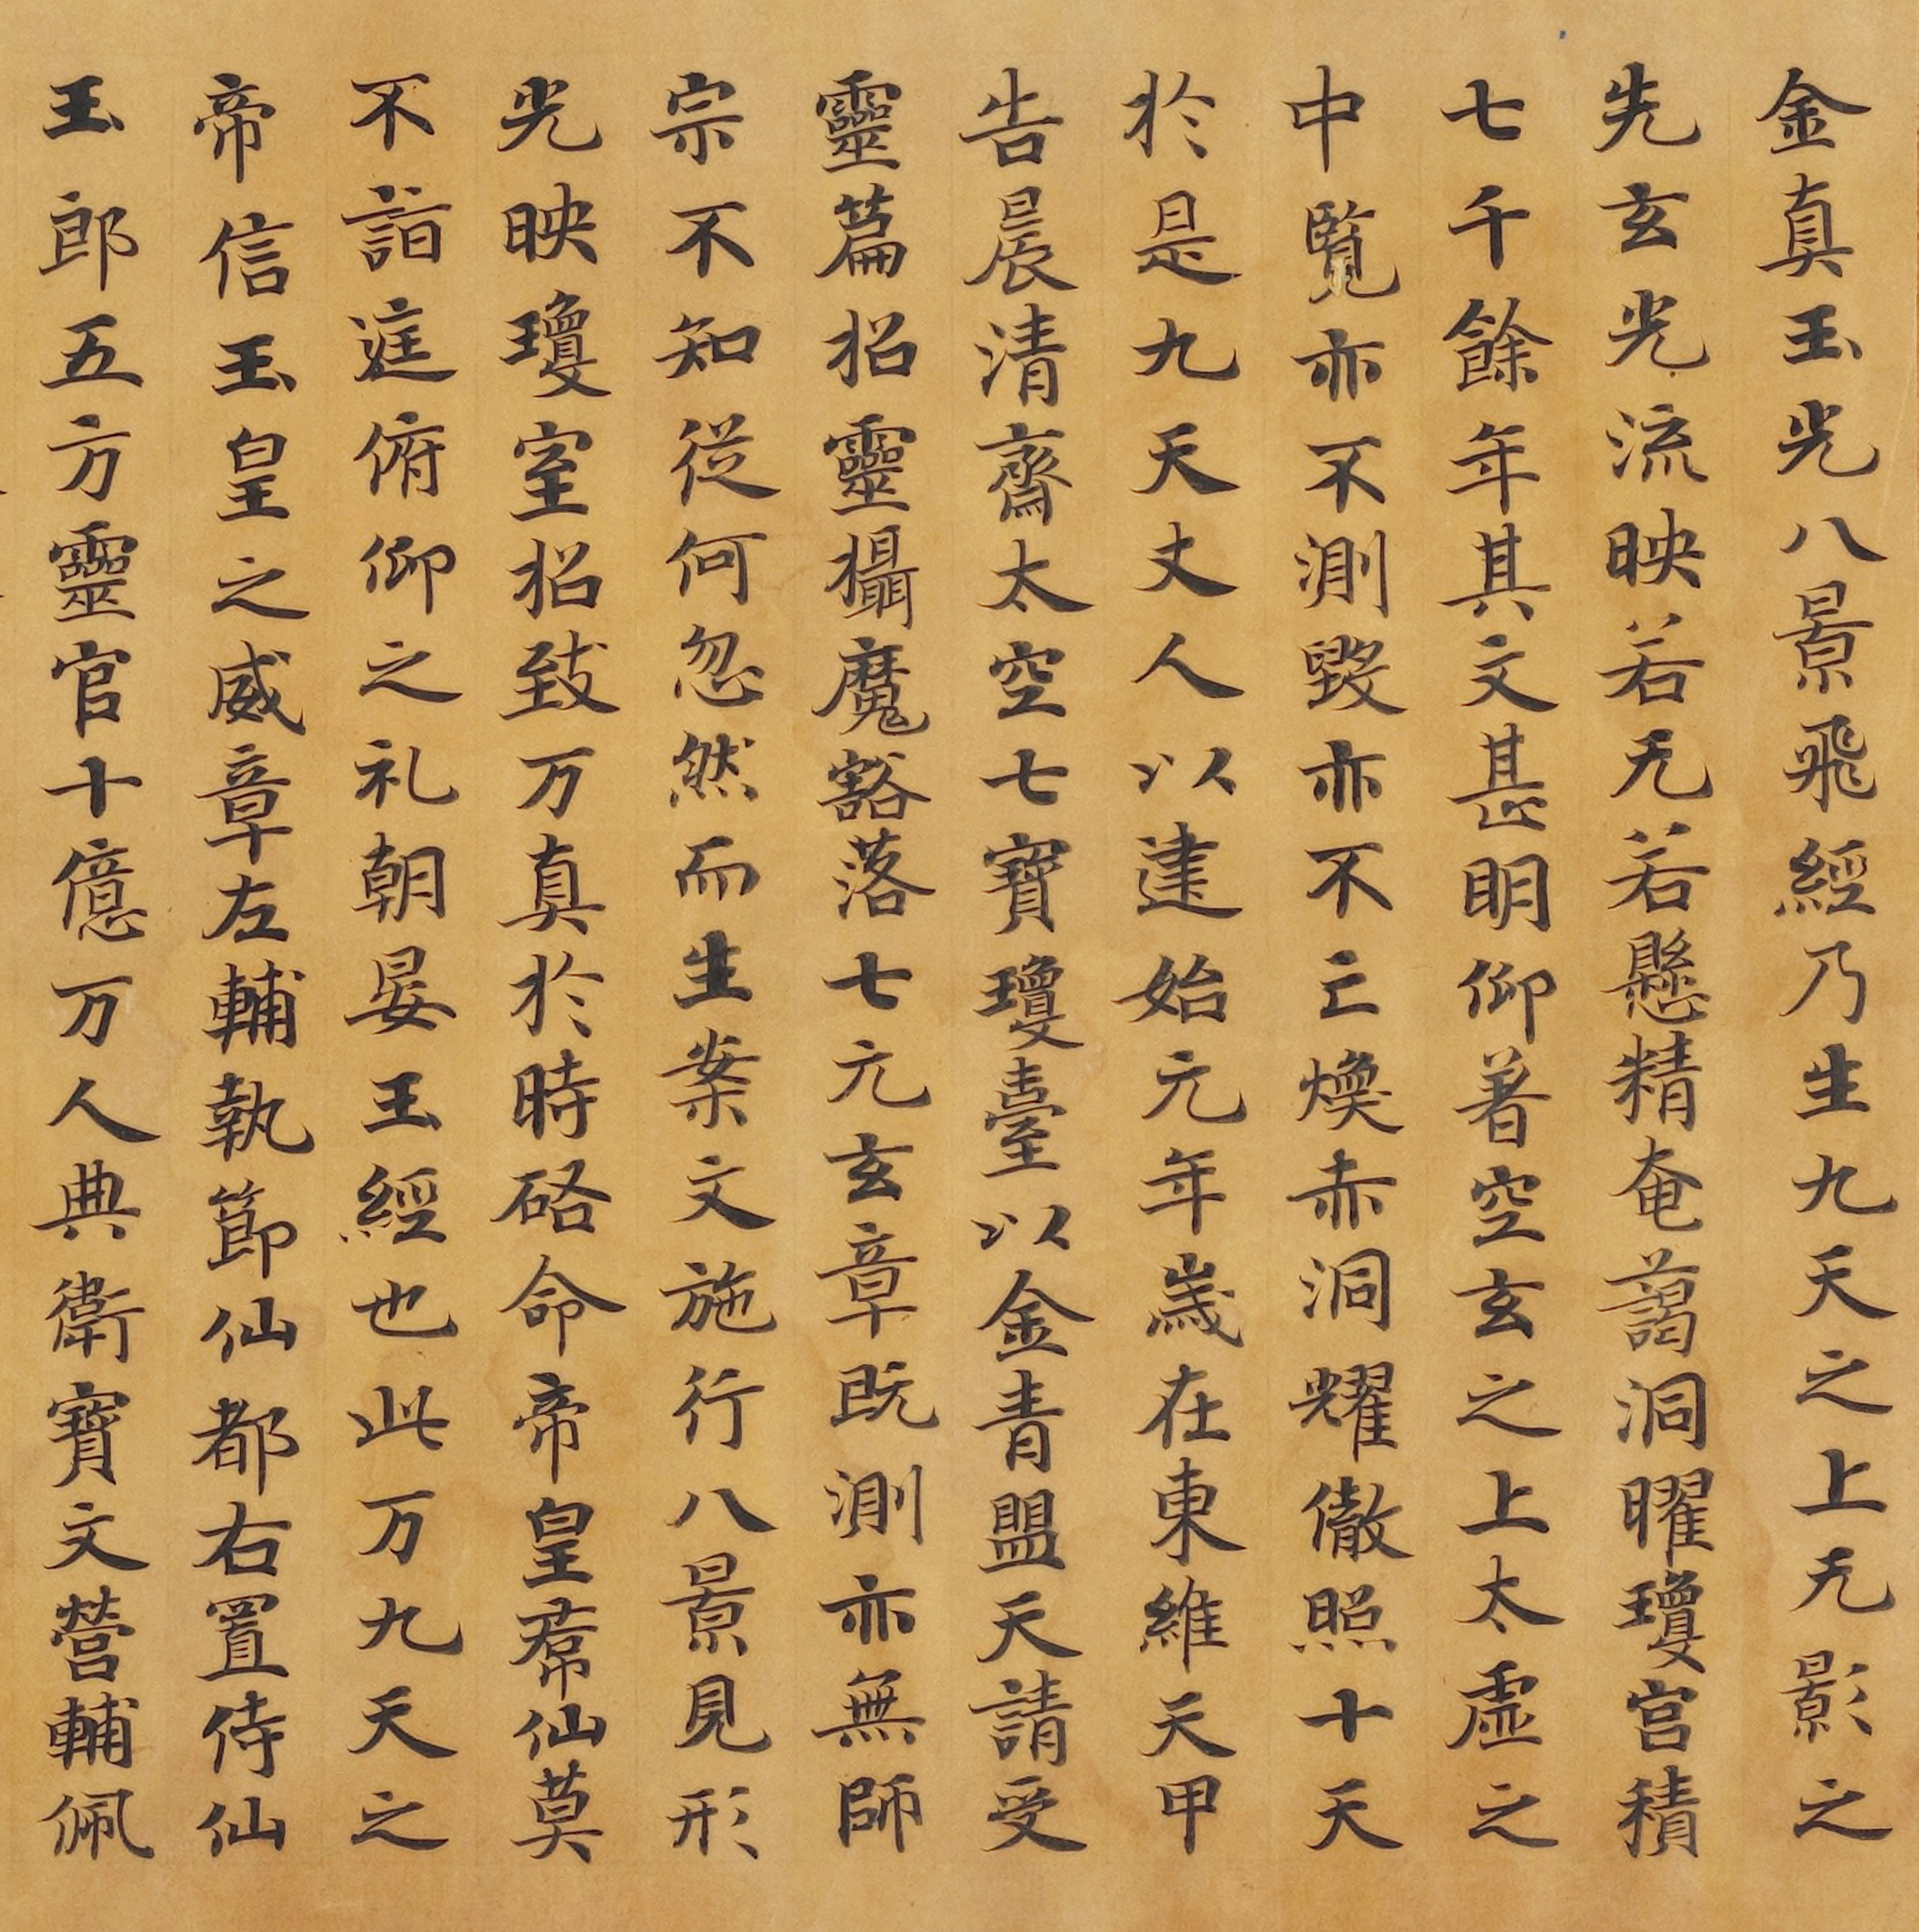 金真玉光八景飛經乃生九天之上无影之
先玄光流映若无若懸精奄藹洞曜瓊宮積
七千餘年其文甚明仰著空玄之上太虛之
中覽亦不測毀亦不亡煥赤洞耀儌照十天
於是九天丈人以建始元年歲在東維天甲
告晨清齋太空七寶瓊臺以金青盟天請受
靈篇招靈攝魔豁落七元玄章既測亦無師
宗不知從何忽然而生案文施行八景見形
光映瓊室招致万真於時硌命帝皇羣仙莫
不詣庭俯仰之礼朝晏玉經也此万九天之
帝信玉皇之威章左輔執節仙都右置侍仙
玉郎五方靈官十億万人典衛寶文營輔佩